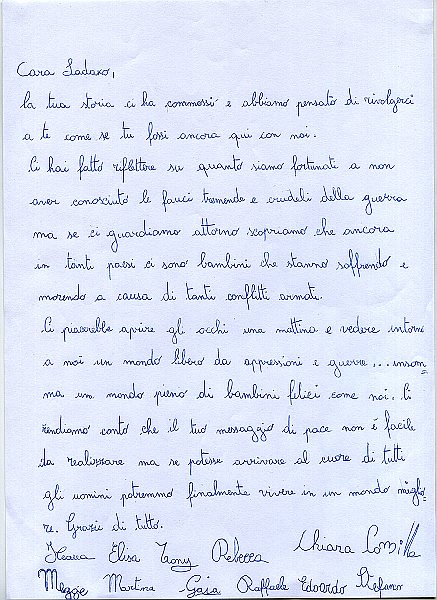 Cara Sadako,
la tua storia ci ha commossi e abbiamo pensato di rivolgerci
a te come se tu fossi ancora qui con noi.
Ci hai fatto riflettere su quanto siamo fortunati a non
aver conosciuto le fauci tremende e crudeli della guerra
ma se ci guardiamo attorno scopriamo che ancora
in tanti paesi ci sono bambini che stanno soffrendo e
morendo a causa di tanti conflitti armati.
Ci piacerebbe aprire gli occhi una mattina e vedere intorno
a noi un mondo libero da oppressioni e guerre,... insom
ma un mondo pieno di bambini felici come noi. Ci
rendiamo conto che il tuo messaggio di pace non è facile
da realizzare ma se potesse arrivare al cuore di tutti
gli uomini potremmo finalmente vivere in un mondo miglio
re. Grazie di tutto.
Elisa Tony Rebecca Chiara
Martina Gaia Raffaele Edoardo Stefano